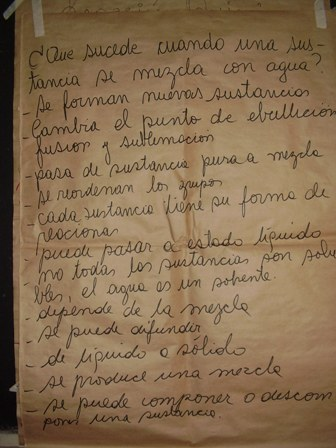 ¿Que sucede cuando una sus-
tancia se mezcla con agua?
- Se forman nuevas sustancias
- Cambia el punto de ebullicion
fusion y sublimacion
- pasa de sustancia pura a mezcla
- se reordenan los grupos
- cada sustancia tiene su forma de
reacionar
- puede pasar a estado liquido
- no todas las sustancias son solu-
bles, el agua es un solvente.
- depende de la mezcla
- se puede difundir
- de liquido a sólido
- se produce una mezcla
- se puede componer o descom
poner una sustancia.